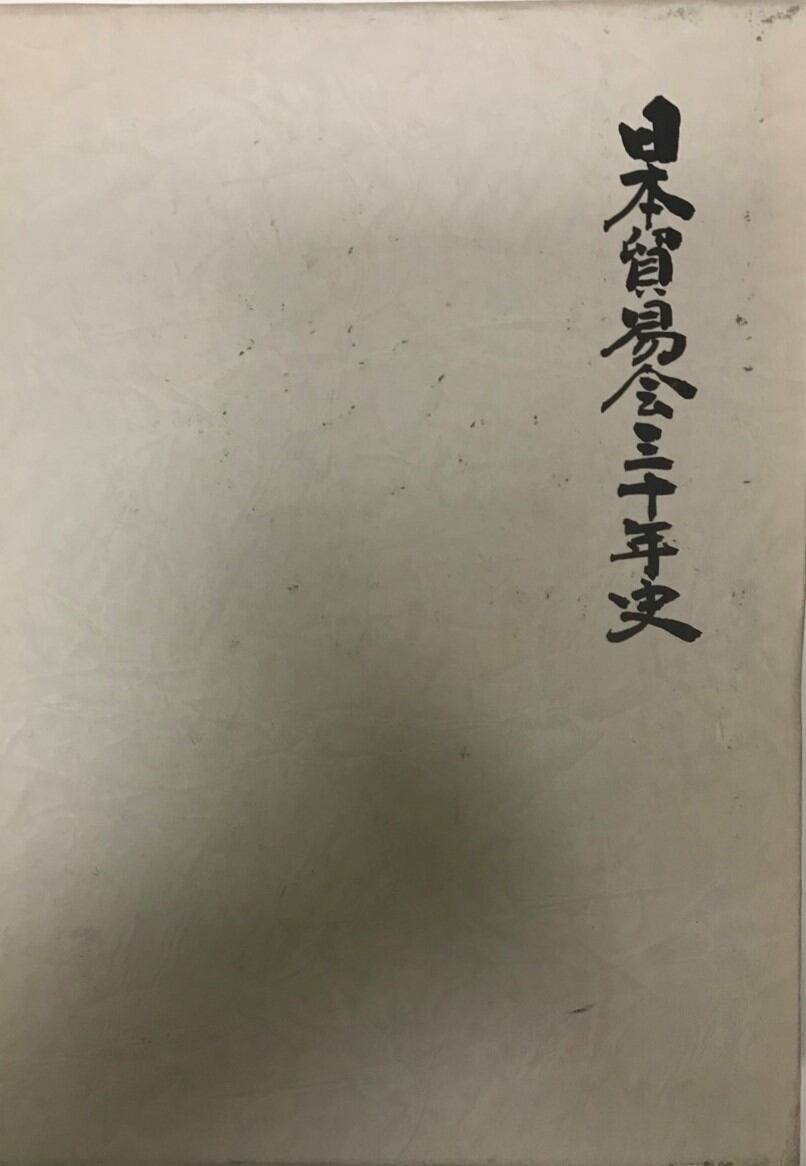 日本貿易会三十年史